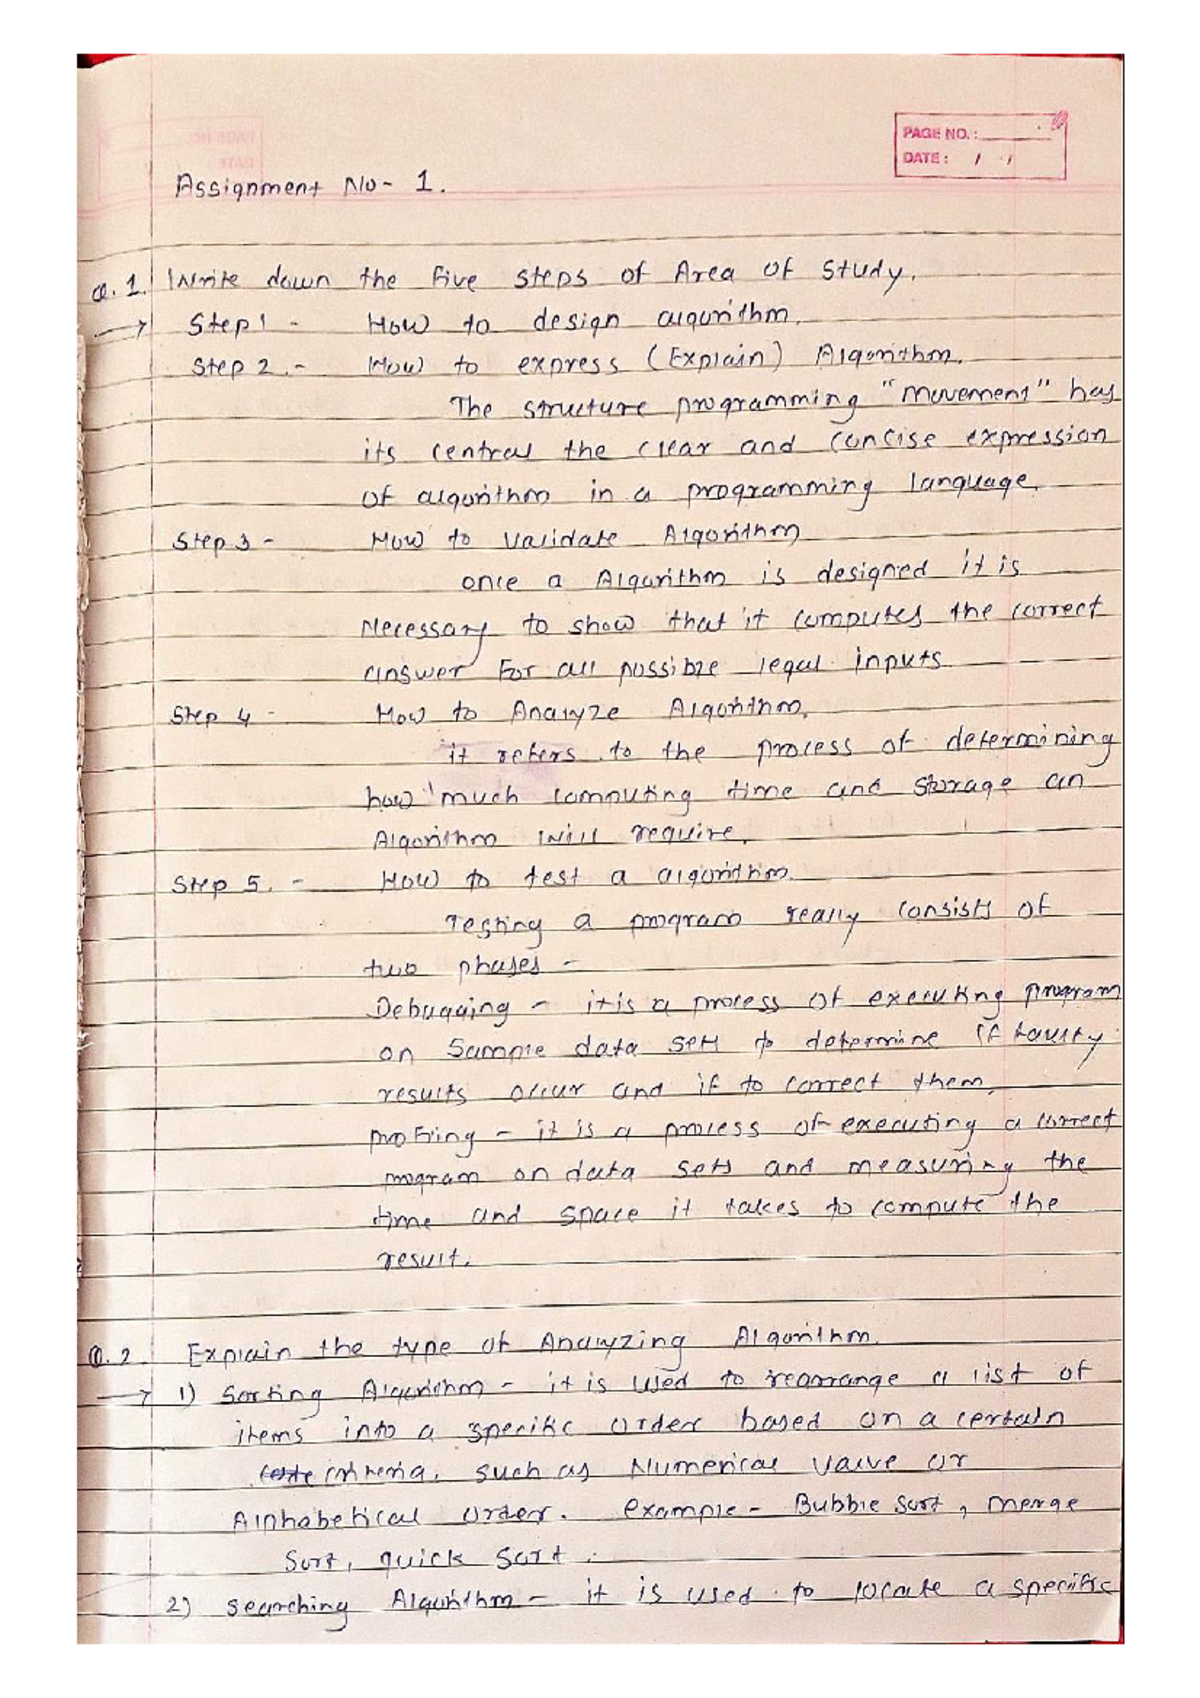 PAGE NO.:
DATE: / /
Assignment No- 1.
Q.1. Write down the five steps of Area of Study.
→ Step 1 - How to design algorithm.
Step 2.- How to express (Explain) Algorithm.
The structure programming "movement" has
its central the clear and concise expression
of algorithm in a programming language.
Step 3 - How to validate Algorithm
once a Algorithm is designed it is
Necessary to show that it computes the correct
answer For all possible legal inputs
Step 4 - How to Analyze Algorithm.
it refers to the process of determining
how much computing time and storage an
Algorithm will require.
Step 5. - How to test a algorithm.
Testing a program really consists of
two phases -
Debugging - it is a process of executing program
on Sample data sets to determine if faulty
results occur and if to correct them.
profiling - it is a process of executing a correct
program on data sets and measuring the
time and space it takes to compute the
result.
Q.2. Explain the type of Analyzing Algorithm.
→ 1) Sorting Algorithm - it is used to rearrange a list of
items into a specific order based on a certain
criteria, such as Numerical value or
Alphabetical order. example - Bubble Sort, merge
Sort, quick Sort.
2) searching Algorithm - it is used to locate a specific